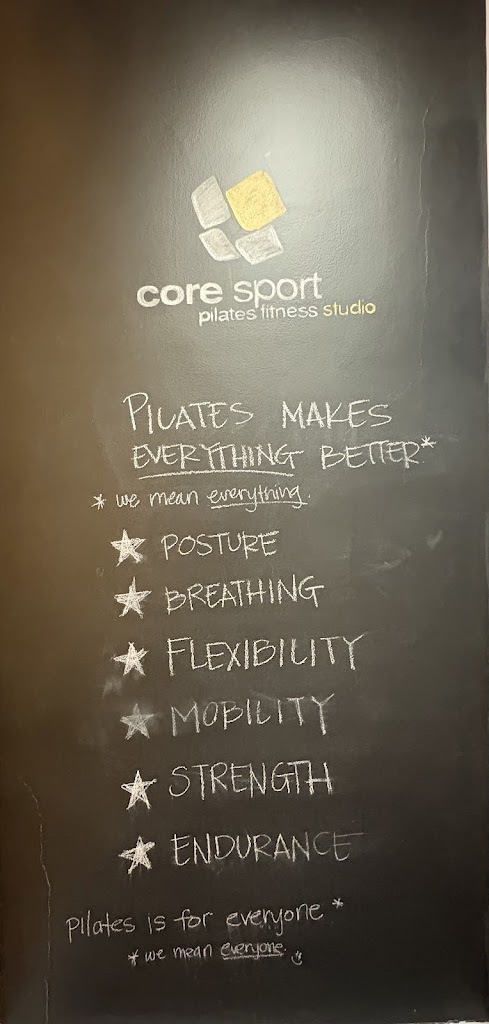 core sport
pilates fitness studio
PILATES MAKES
EVERYTHING BETTER*
* we mean everything.
★ POSTURE
★ BREATHING
★ FLEXIBILITY
★ MOBILITY
★ STRENGTH
★ ENDURANCE
Pilates is for everyone *
* we mean everyone. :)